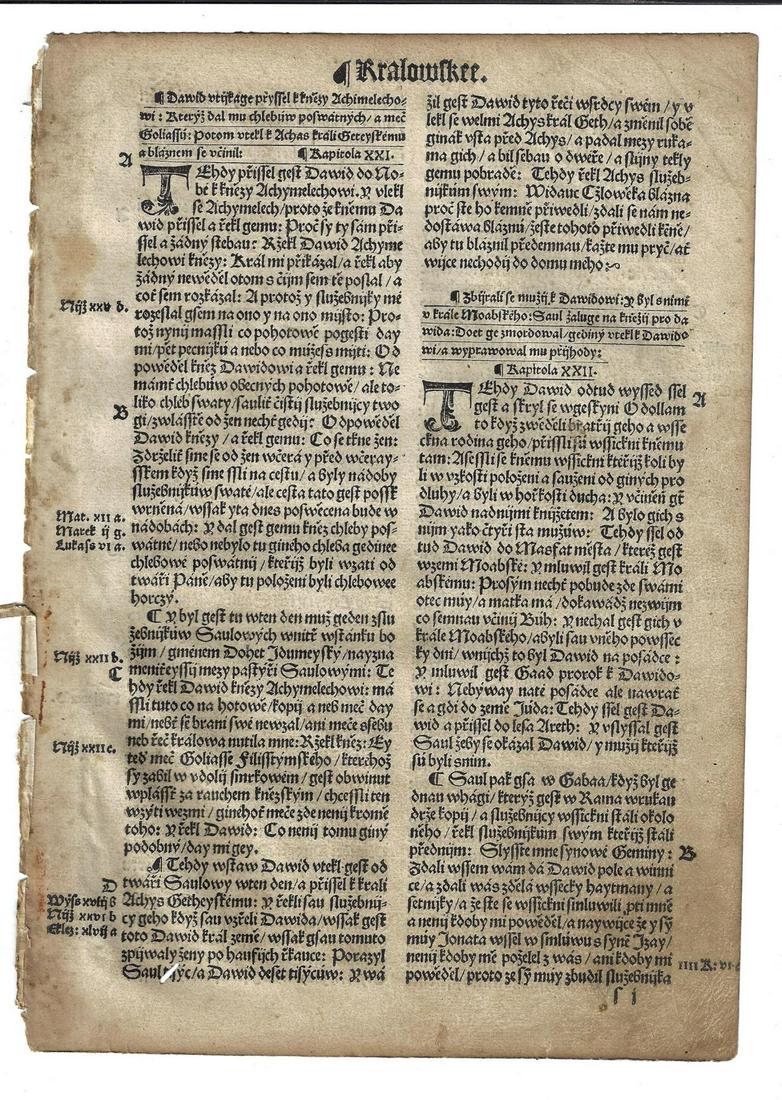 ¶ Kralowskee.
¶ Dawid vtijkage přyssel k knězy Achimelecho-
wi: Kteryž dal mu chlebůw poswátných / a meč
Goliassů: Potom vtekl k Achas králi Geteyskému
a bláznem se včinil: ¶ Kapitola XXI.
A
TEhdy přissel gest Dawid do No-
bé k knězy Achymelechowi. Y vlekl
se Achymelech / proto že kněmu Da
wid přissel a řekl gemu: Proč sy ty sám při-
ssel a žádný stebau: Ržekl Dawid Achyme
lechowi knězy: Král mi přikázal / a řekl aby
žádný newěděl otom s čijm sem tě poslal / a
cot sem rozkázal: A protož y služebnijky mé
rozeslal gsem na ono y na ono mijsto: Pro-
Nijž xxv d.
tož nynij massli co pohotowě pogesti day
mi / pět pecnijků a nebo co můžess mijti: Od
powěděl kněz Dawidowi a řekl gemu: Ne
mámt chlebůw obecných pohotowě / ale to-
liko chléb swaty / saulit čistij služebnijcy two
B
gi / zwlásstě od žen nechť gedij: Odpowěděl
Dawid knězy / a řekl gemu: Co se tkne žen:
Zdrželit sme se od žen wčera y před wčeray-
sskem když sme ssli na cestu / a byly nádoby
služebnijkůw swaté / ale cesta tato gest possk
wrněná / wssak yta dnes poswěcena bude w
Mat. XII a.
Marek ij g.
Lukass vi a.
nádobách: Y dal gest gemu kněz chleby pos-
wátné / nebo nebylo tu giného chleba gedinee
chlebowé poswátnij / kteřijž byli wzati od
twáři Páně / aby tu položeni byli chlebowee
horczy.
¶ Y byl gest tu wten den muž geden zslu
žebnijkůw Saulowých wnitř wstánku bo
žijm / gménem Dohet Idumeyský / nayzna
Nijž xxII b.
C
meniteyssij mezy pastýři Saulowými: Te
hdy řekl Dawid knězy Achymelechowi: má
ssli tuto co na hotowě / kopij a neb meč day
mi / nebť se brani swé newzal / ani meče ssebu
neb řeč králowa nutila mne: Ržekl kněz: Ey
Nijž xxII c.
teď meč Goliasse Filisstymského / kterehož
sy zabil w vdolij smrkowém / gest obwinut
wplásst za rauchem kněžským / chcessli ten
wzyti wezmi / ginéhoť meče zde nenij kromě
toho: Y řekl Dawid: Co nenij tomu giný
podobný / day mi gey.
¶ Tehdy wstaw Dawid vtekl gest od
D
twáři Saulowy wten den / a přissel k králi
Wýss xviij b
Achys Getheyskému: Y řekli sau služebnij-
Nijž xxvi b
cy geho když sau vzřeli Dawida / wssak gest
Ekkez: xlvij a
toto Dawid král země / wssak gsau tomuto
zpijwaly ženy po haufijch řkauce: Porazyl
Saul tisýc / a Dawid deset tisýcůw: Y wá
žil gest Dawid tyto řeči wsrdcy swém / y v
lekl se welmi Achys král Geth / a změnil sobě
ginák vsta před Achys / a padal mezy ruka-
ma gich / a bil sebau o dweře / a slijny tekly
gemu pobradě: Tehdy řekl Achys služeb-
nijkům swým: Widauc Człowěka blázna
proč ste ho kemně přiwedli / zdali se nám ne-
dostáwá bláznů / žeste tohoto přiwedli kěně /
aby tu bláznil předemnau / kažte mu pryč / at
wijce nechodij do domu mého:
¶ Zbijrali se mužij k Dawidowi: Y byl snimi
v krále Moabského: Saul žaluge na kněžij pro da
wida: Doet ge zmordowal / gediny vtekl k Dawido
wi / a wyprawowal mu přijhody:
¶ Kapitola XXII.
TEhdy Dawid odtud wyssed ssel
A
gest a skryl se wgeskyni Odollam
to když zwěděli bratřij geho a wsse
ckna rodina geho / přissli sú wssickni kněmu
tam: A sessli se kněmu wssickni kteřijž koli by
li w vzkosti položeni a saužení od giných pro
dluhy / a byli w hořkosti ducha: Y včiněn gt
Dawid nadnijmi knijžetem: A bylo gich s
nijm yako čtyři sta mužůw: Tehdy ssel od
tud Dawid do Masfat města / kteréž gest
wzemi Moabské: Y mluwil gest králi Mo
abskému: Prosým nechť pobude zde swámi
otec múy / a matka má / dokawádž nezwijm
co semnau včinij Bůh: Y nechal gest gich v
krále Moabského / abyli sau vněho powssec
ky dni / wnichž to byl Dawid na posádce:
Y mluwil gest Gaad prorok k Dawido-
wi: Nebyway natě posádce ale nawrat
se a gdi do země Júda: Tehdy ssel gest Da-
wid a přissel do lesa Areth: Y vslyssal gest
Saul žeby se okázal Dawid / y mužij kteřijž
sú byli snim.
¶ Saul pak gsa w Gabaa / když byl ge
dnau whági / kterýž gest w Rama wrukau
drže kopij / a služebnijcy wssickni stáli okolo
něho / řekl služebnijkům swým kteřijž stáli
přednijm: Slysste mne synowé Geminy:
B
Zdali wssem wám dá Dawid pole a winni
ce / a zdali wás zděla wssecky haytmany / a
setnijky / a že ste se wssickni smluwili pti mně
a nenij kdoby mi powěděl / a naywijce že y sý
múy Jonata wssel w smluwu s syně Izay /
nenij kdoby mě poželel z wás / ani kdoby mi
IIII K: vi
powěděl / proto že sý múy zbudil služebnijka
s j